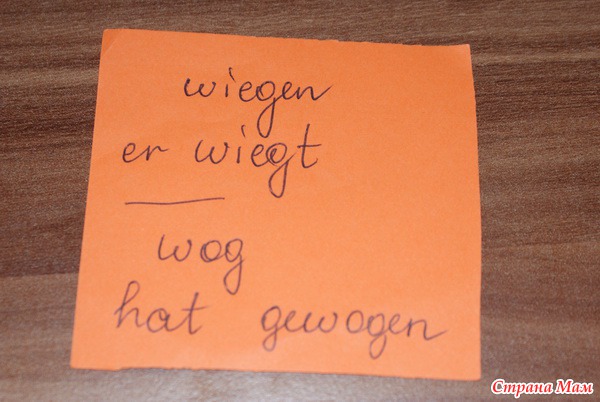 wiegen
er wiegt
wog
hat gewogen
Страна Мам